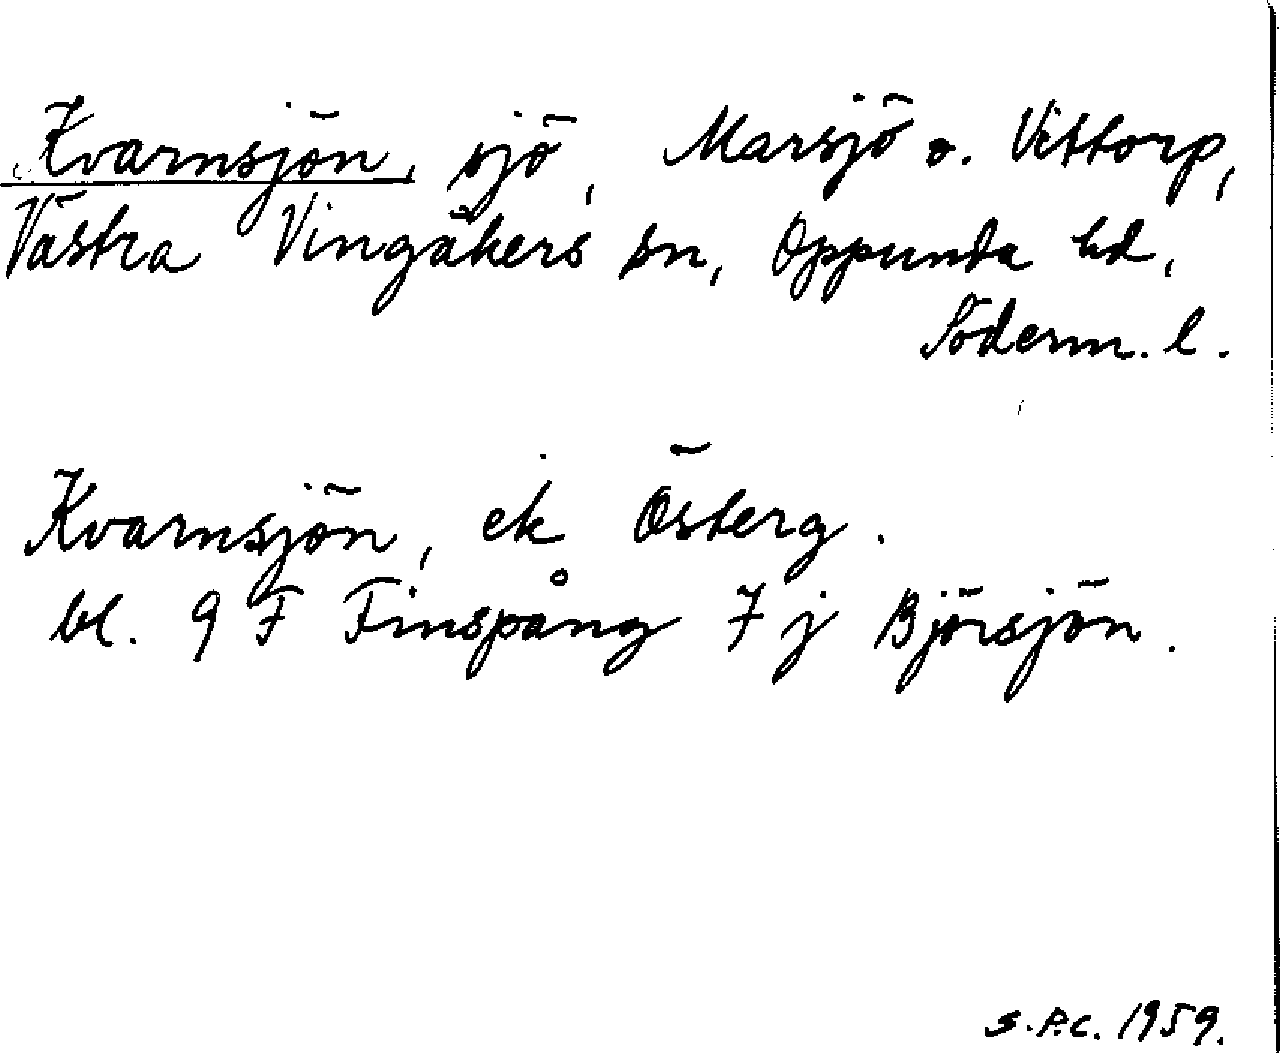 Kvarnsjön, sjö, Marsjö o. Vittorp,
Västra Vingåkers sn, Oppunda hd,
Söderm. l.
Kvarnsjön, ek Österg.
bl. 9 F Finspång 7 j Björsjön.
S.P.C. 1959.